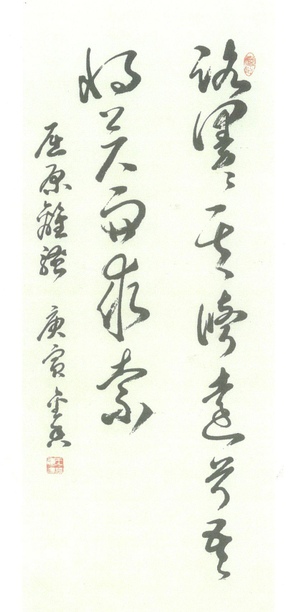 路漫々其修遠兮吾
將上下而求索
屈原離騷 庚寅